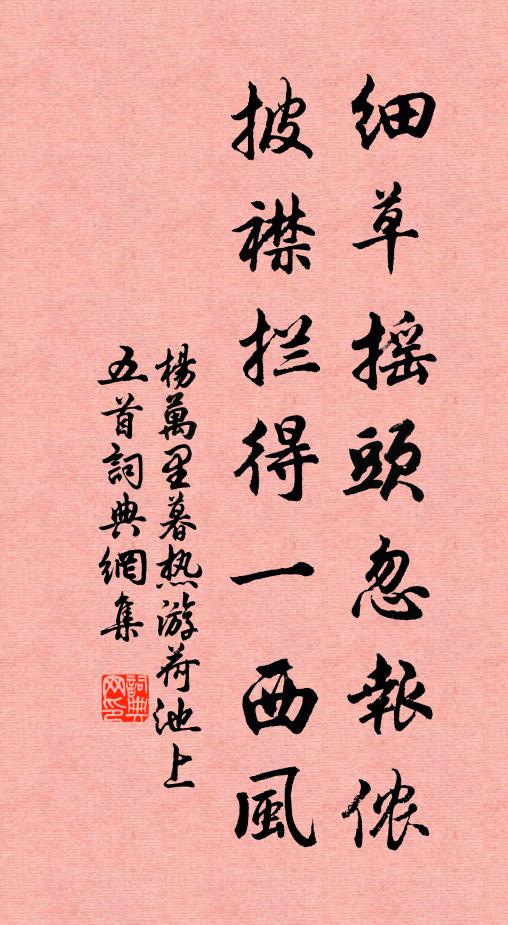 细草摇頭忽報侬
披襟拦得一西風
楊萬里暮热游荷池上
五首詞典網集
詞典网印